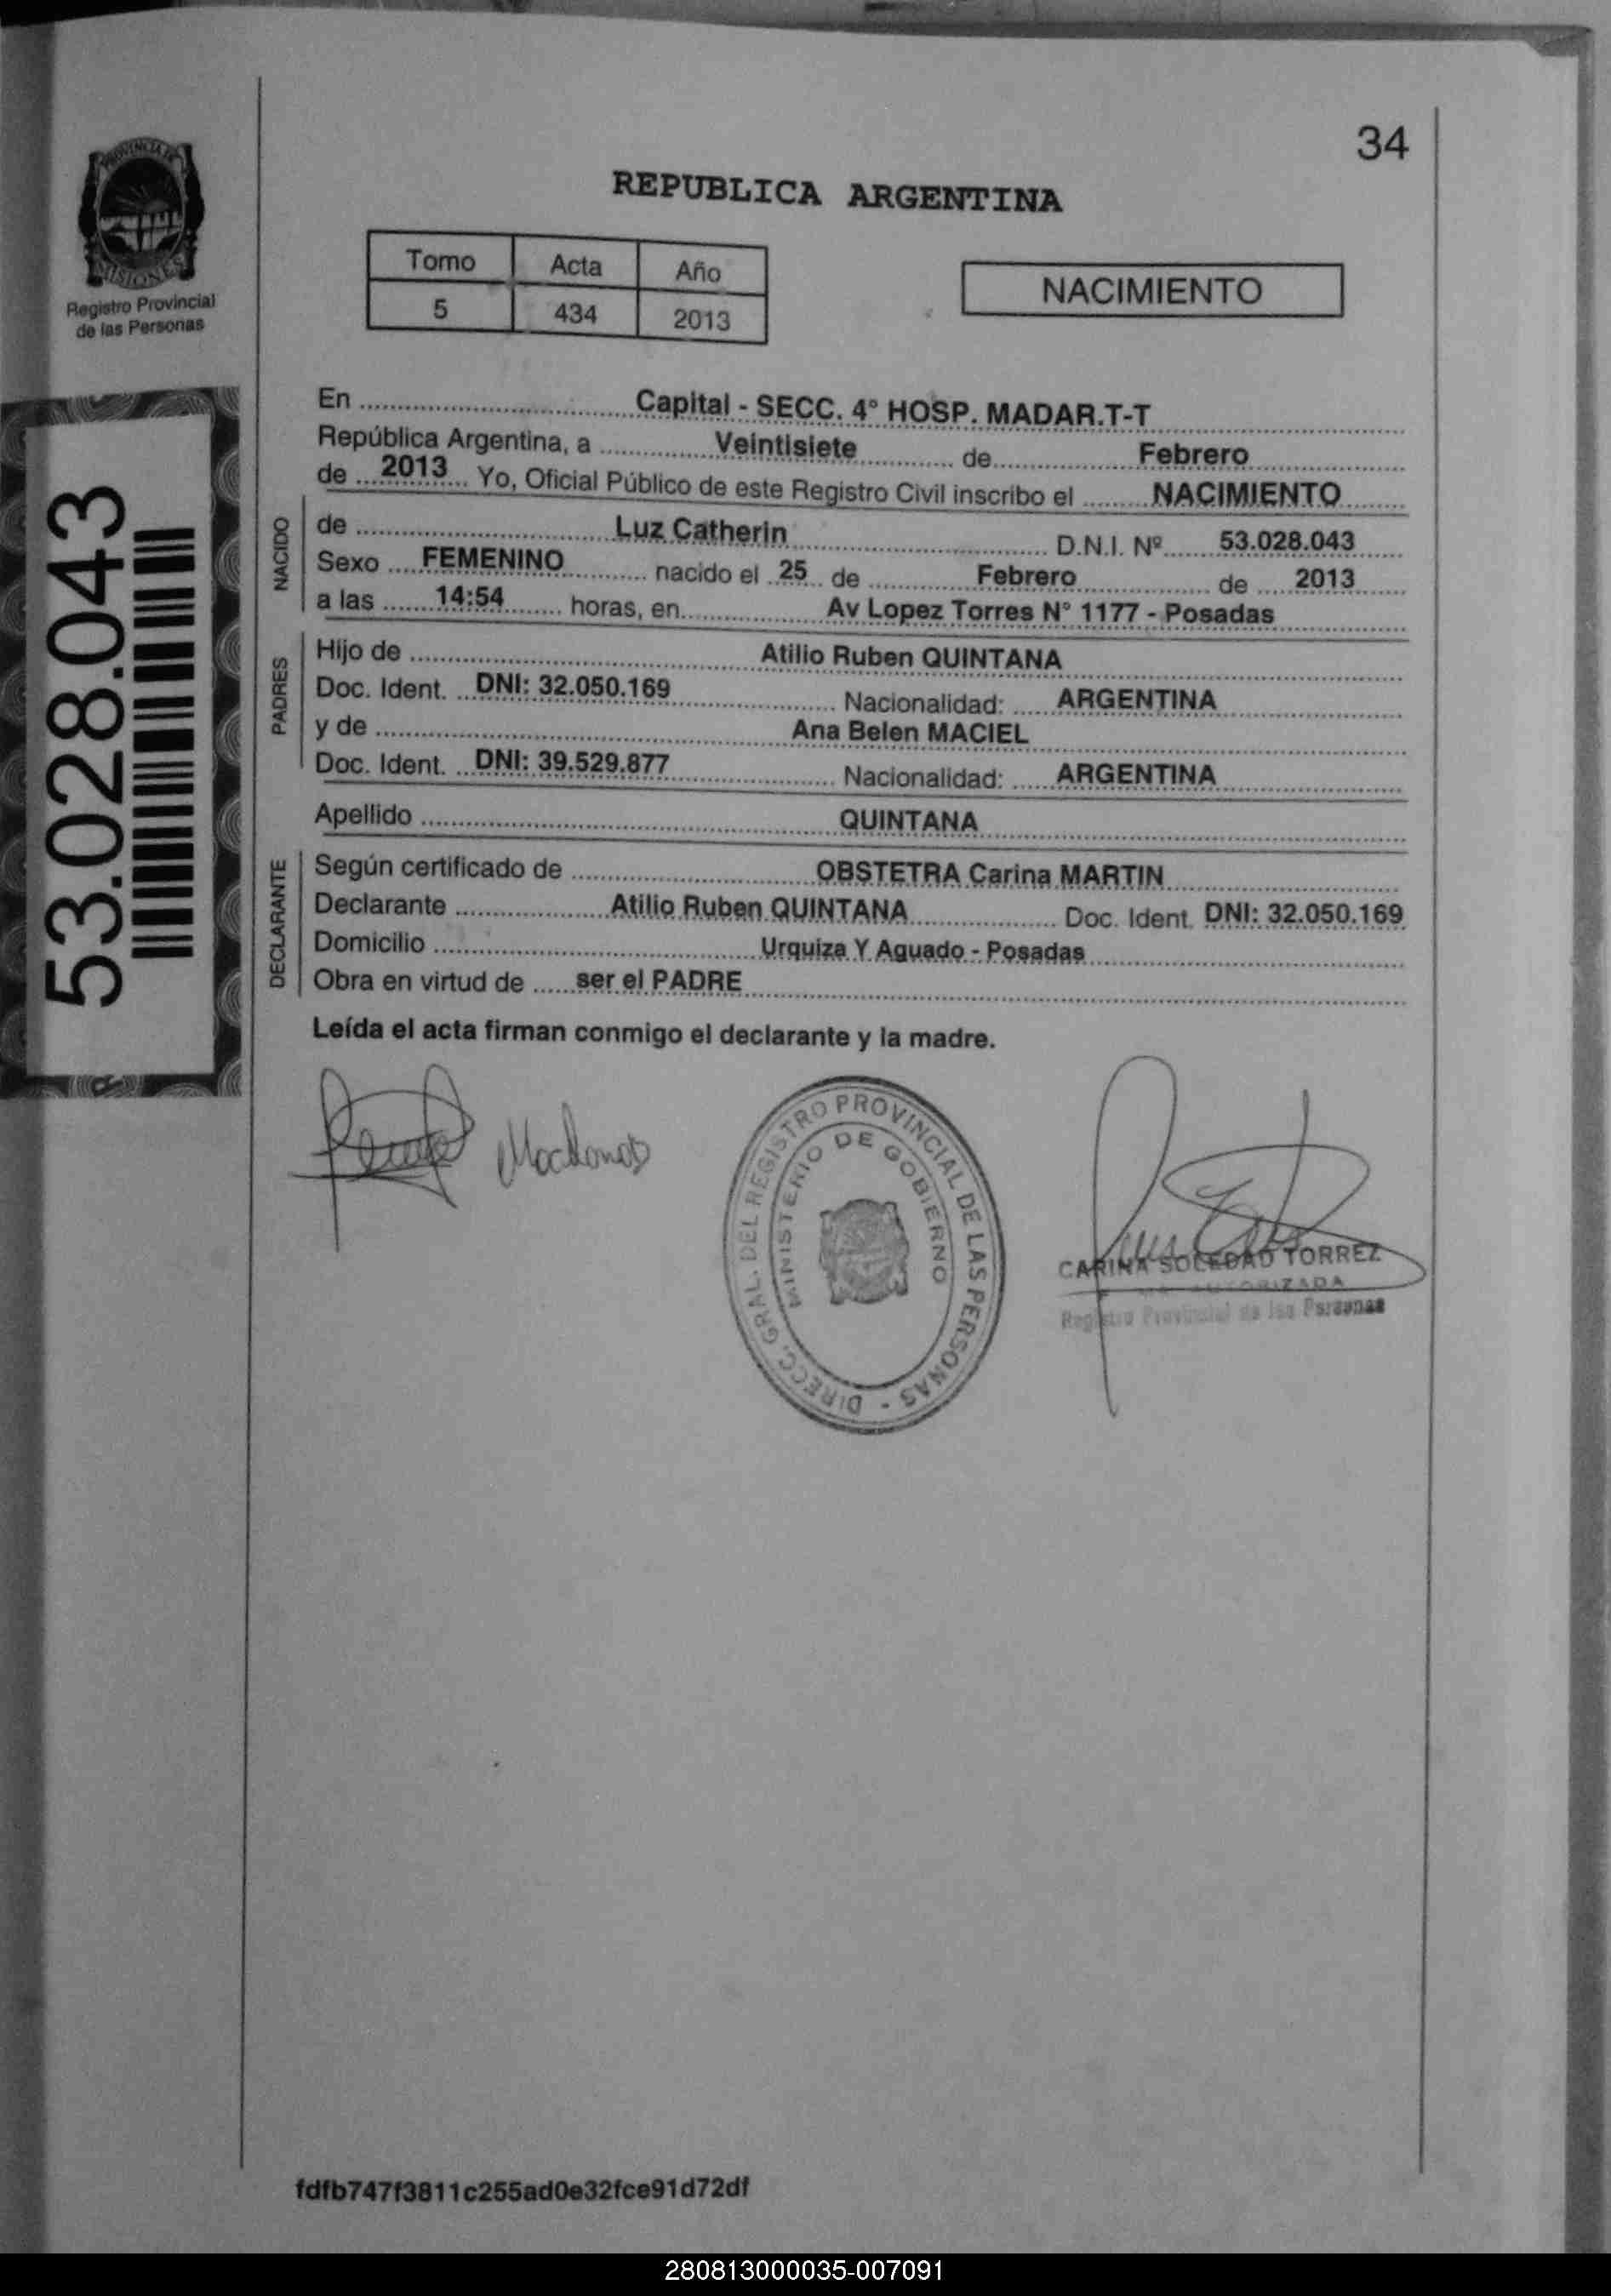 34
PROVINCIA DE
MISIONES
Registro Provincial
de las Personas
REPUBLICA ARGENTINA
Tomo Acta Año
5 434 2013
NACIMIENTO
53.028.043
En Capital - SECC. 4° HOSP. MADAR.T-T
República Argentina, a Veintisiete de Febrero
de 2013 Yo, Oficial Público de este Registro Civil inscribo el NACIMIENTO
NACIDO
de Luz Catherin D.N.I. Nº 53.028.043
Sexo FEMENINO nacido el 25 de Febrero de 2013
a las 14:54 horas, en Av Lopez Torres N° 1177 - Posadas
PADRES
Hijo de Atilio Ruben QUINTANA
Doc. Ident. DNI: 32.050.169 Nacionalidad: ARGENTINA
y de Ana Belen MACIEL
Doc. Ident. DNI: 39.529.877 Nacionalidad: ARGENTINA
Apellido QUINTANA
DECLARANTE
Según certificado de OBSTETRA Carina MARTIN
Declarante Atilio Ruben QUINTANA Doc. Ident. DNI: 32.050.169
Domicilio Urquiza Y Aguado - Posadas
Obra en virtud de ser el PADRE
Leída el acta firman conmigo el declarante y la madre.
DIRECC. GRAL. DEL REGISTRO PROVINCIAL DE LAS PERSONAS -
MINISTERIO DE GOBIERNO
CARINA SOLEDAD TORREZ
AUTORIZADA
Registro Provincial de las Personas
fdfb747f3811c255ad0e32fce91d72df
280813000035-007091